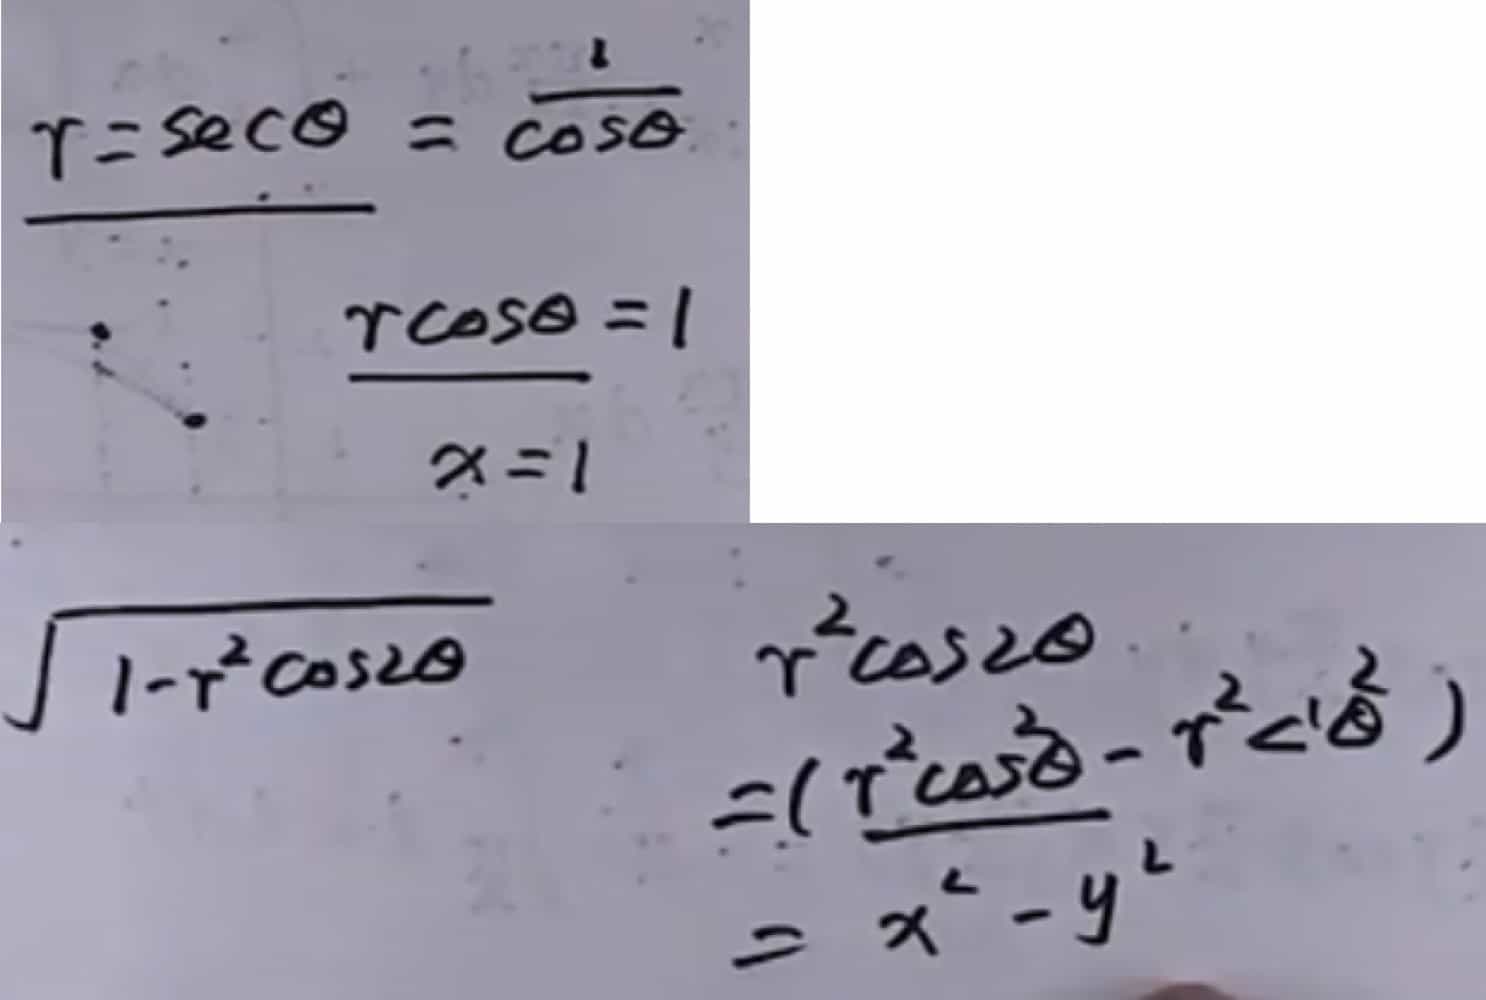 r = secθ = 1/cosθ
r cosθ = 1
x = 1
√(1 - r² cos2θ)
r² cos2θ
= (r² cos²θ - r² θ²)
= x² - y²